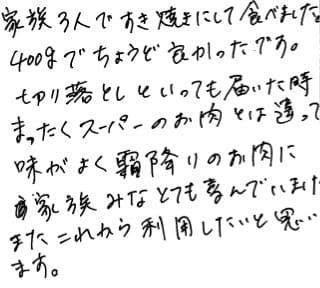 家族3人ですき焼きにして食べました
400gでちょうど良かったです。
切り落としといっても届いた時
まったくスーパーのお肉とは違って
味がよく霜降りのお肉に
家族みなとても喜んでいました
またこれから利用したいと思い
ます。